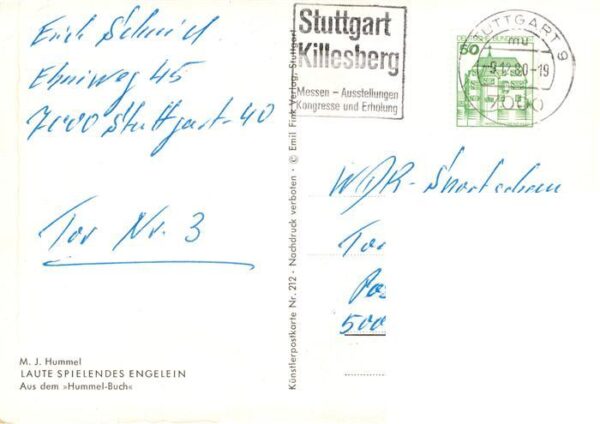 Erich Schmid
Ehniweg 45
7000 Stuttgart-40
Tor Nr. 3
M. J. Hummel
LAUTE SPIELENDES ENGELEIN
Aus dem »Hummel-Buch«
Künstlerpostkarte Nr. 212 · Nachdruck verboten · © Emil Fink Verlag, Stuttgart
Stuttgart
Killesberg
Messen – Ausstellungen
Kongresse und Erholung
STUTTGART 9
mu
-9.12.80-19
7000
50
WDR-Sportschau
Tor
Pos
500